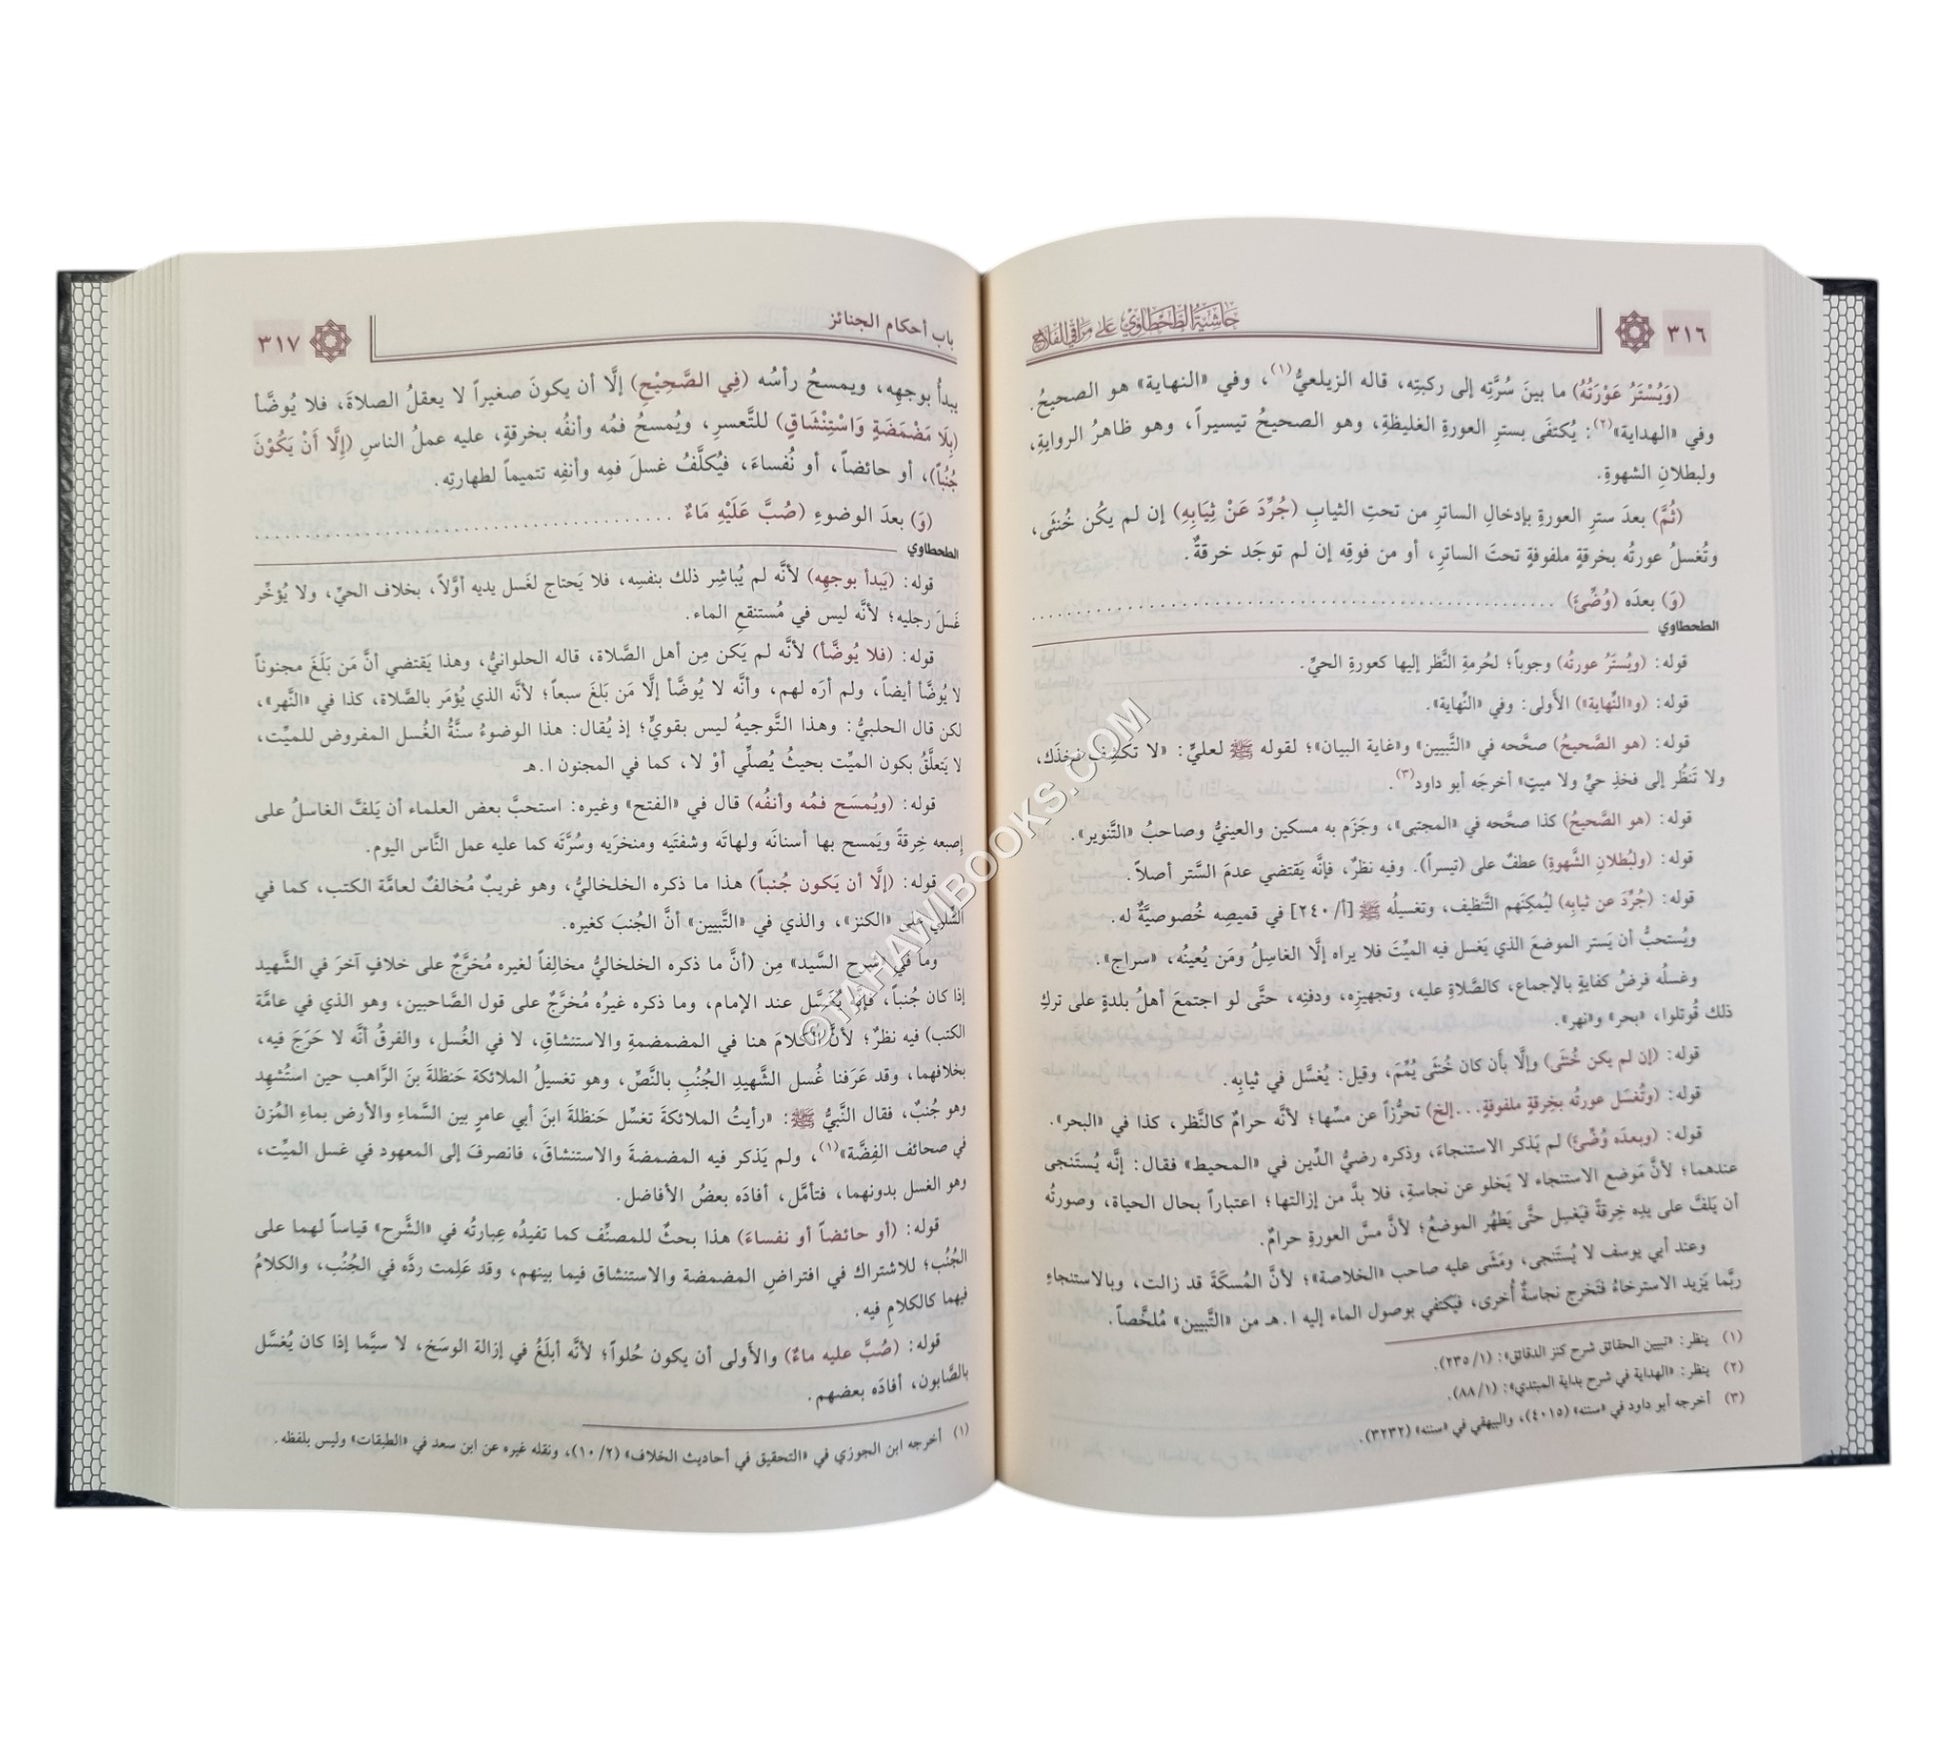 ٣١٦
حاشية الطحطاوي على مراقي الفلاح
(وَيُسْتَرُ عَوْرَتُهُ) ما بينَ سُرَّتِه إلى ركبتِه، قاله الزيلعيُّ(١)، وفي «النهاية» هو الصحيحُ.
وفي «الهداية»(٢): يُكتفَى بسترِ العورةِ الغليظةِ، وهو الصحيحُ تيسيراً، وهو ظاهرُ الروايةِ،
ولبطلانِ الشهوةِ.
(ثُمَّ) بعدَ سترِ العورةِ بإدخالِ الساترِ من تحتِ الثيابِ (جُرِّدَ عَنْ ثِيَابِهِ) إن لم يكُن خُنثَى،
وتُغسلُ عورتُه بخرقةٍ ملفوفةٍ تحتَ الساترِ، أو من فوقِه إن لم توجَد خرقةٌ.
(وَ) بعدَه (وُضِّئَ) ............
الطحطاوي
قوله: (ويُستَرُ عورتُه) وجوباً؛ لحُرمةِ النَّظر إليها كعورةِ الحيِّ.
قوله: (و«النِّهاية») الأَولى: وفي «النِّهاية».
قوله: (هو الصَّحيحُ) صحَّحه في «التَّبيين» و«غاية البيان»؛ لقوله ﷺ لعليٍّ: «لا تكشِف فخذَك،
ولا تَنظُر إلى فخذِ حيٍّ ولا ميتٍ» أخرجَه أبو داود(٣).
قوله: (هو الصَّحيحُ) كذا صحَّحه في «المجتبى»، وجَزَم به مسكين والعينيُّ وصاحبُ «التَّنوير».
قوله: (ولبُطلانِ الشَّهوةِ) عطفٌ على (تيسراً). وفيه نظرٌ، فإنَّه يَقتضي عدمَ السَّتر أصلاً.
قوله: (جُرِّدَ عن ثيابِه) ليُمكِنَهم التَّنظيف، وتغسيلُه ﷺ [أ/٢٤٠] في قميصِه خُصوصيَّةٌ له.
ويُستحبُّ أن يَستر الموضعَ الذي يَغسل فيه الميِّتَ فلا يراه إلَّا الغاسِلُ ومَن يُعينُه، «سراج».
وغسلُه فرضُ كفايةٍ بالإجماع، كالصَّلاةِ عليه، وتجهيزِه، ودفنِه، حتَّى لو اجتمعَ أهلُ بلدةٍ على تركِ
ذلك قُوتلوا، «بحر» و«نهر».
قوله: (إن لم يكن خُنثَى) وإلَّا بأَن كان خُنثَى يُمِّمَ، وقيل: يُغسَّل في ثيابِه.
قوله: (وتُغسَل عورتُه بخِرقةٍ ملفوفةٍ...إلخ) تحرُّزاً عن مسِّها؛ لأنَّه حرامٌ كالنَّظر، كذا في «البحر».
قوله: (وبعدَه وُضِّئَ) لم يَذكر الاستنجاءَ، وذكره رضيُّ الدِّين في «المحيط» فقال: إنَّه يُستَنجى
عندهما؛ لأنَّ مَوضع الاستنجاء لا يَخلو عن نجاسةٍ، فلا بدَّ من إزالتها؛ اعتباراً بحال الحياة، وصورتُه
أن يَلفَّ على يدِه خِرقةً فيَغسِل حتَّى يَطهُر الموضعُ؛ لأنَّ مسَّ العورةِ حرامٌ.
وعند أبي يوسف لا يُستَنجى، ومَشَى عليه صاحب «الخلاصة»؛ لأنَّ المُسكَةَ قد زالت، وبالاستنجاءِ
ربَّما يَزيد الاسترخاءُ فتَخرج نجاسةٌ أُخرى، فيَكتفي بوصول الماء إليه ا.هـ من «التَّبيين» مُلخَّصاً.
(١) ينظر: «تبيين الحقائق شرح كنز الدقائق»: (٢٣٥/١).
(٢) ينظر: «الهداية في شرح بداية المبتدي»: (٨٨/١).
(٣) أخرجه أبو داود في «سننه» (٤٠١٥)، والبيهقي في «سننه» (٣٢٣٢).
باب أحكام الجنائز
٣١٧
يبدأُ بوجهِه، ويمسحُ رأسُه (فِي الصَّحِيْحِ) إلَّا أن يكونَ صغيراً لا يعقلُ الصلاةَ، فلا يُوضَّأ
(بِلَا مَضْمَضَةٍ وَاسْتِنْشَاقٍ) للتَّعسرِ، ويُمسحُ فمُه وأنفُه بخرقةٍ، عليه عملُ الناسِ (إِلَّا أَنْ يَكُوْنَ
جُنُباً)، أو حائضاً، أو نُفساءَ، فيُكلَّفُ غسلَ فمِه وأنفِه تتميماً لطهارتِه.
(وَ) بعدَ الوضوءِ (صُبَّ عَلَيْهِ مَاءٌ ............
الطحطاوي
قوله: (يَبدأ بوجهِه) لأنَّه لم يُباشِر ذلك بنفسِه، فلا يَحتاج لغَسل يديه أوَّلاً، بخلاف الحيِّ، ولا يُؤخِّر
غَسلَ رجليه؛ لأنَّه ليس في مُستنقعِ الماء.
قوله: (فلا يُوضَّأ) لأنَّه لم يَكن مِن أهل الصَّلاة، قاله الحلوانيُّ، وهذا يَقتضي أنَّ مَن بَلَغَ مجنوناً
لا يُوضَّأ أيضاً، ولم أرَه لهم، وأنَّه لا يُوضَّأ إلَّا مَن بَلغَ سبعاً؛ لأنَّه الذي يُؤمَر بالصَّلاة، كذا في «النَّهر»،
لكن قال الحلبيُّ: وهذا التَّوجيهُ ليس بقويٍّ؛ إذ يُقال: هذا الوضوءُ سنَّةُ الغُسل المفروض للميِّت،
لا يَتعلَّقُ بكون الميِّت بحيثُ يُصلِّي أوْ لا، كما في المجنون ا.هـ
قوله: (ويُمسَح فمُه وأنفُه) قال في «الفتح» وغيره: استحبَّ بعض العلماء أن يَلفَّ الغاسلُ على
إصبعه خِرقةً ويَمسح بها أسنانَه ولهاتَه وشفتَيه ومنخرَيه وسُرَّتَه كما عليه عمل النَّاس اليوم.
قوله: (إلَّا أن يَكون جُنباً) هذا ما ذكره الخلخاليُّ، وهو غريبٌ مُخالفٌ لعامَّة الكتب، كما في
الشِّلبي على «الكنز»، والذي في «التَّبيين» أنَّ الجُنبَ كغيره.
وما في «شرح السَّيد» مِن (أنَّ ما ذكره الخلخاليُّ مخالِفاً لغيره مُخرَّجٌ على خلافٍ آخرَ في الشَّهيد
إذا كان جُنباً، فإنَّه يُغسَّل عند الإمام، وما ذكره غيرُه مُخرَّجٌ على قول الصَّاحبين، وهو الذي في عامَّة
الكتب) فيه نظرٌ؛ لأنَّ الكلامَ هنا في المضمضةِ والاستنشاقِ، لا في الغُسل، والفرقُ أنَّه لا حَرَجَ فيه،
بخلافهما، وقد عَرَفنا غُسل الشَّهيدِ الجُنُبِ بالنَّصِّ، وهو تغسيلُ الملائكة حَنظلةَ بنَ الرَّاهب حين استُشهِد
وهو جُنبٌ، فقال النَّبيُّ ﷺ: «رأيتُ الملائكةَ تغسِّل حَنظلةَ ابنَ أبي عامرٍ بين السَّماءِ والأرض بماءِ المُزن
في صحائف الفِضَّة»(١)، ولم يَذكر فيه المضمضةَ والاستنشاقَ، فانصرفَ إلى المعهود في غسل الميِّت،
وهو الغسل بدونهما، فتأمَّل، أفادَه بعضُ الأفاضل.
قوله: (أو حائضاً أو نفساءَ) هذا بحثٌ للمصنِّف كما تفيدُه عِبارتُه في «الشَّرح» قياساً لهما على
الجُنُب؛ للاشتراك في افتراضِ المضمضة والاستنشاق فيما بينهم، وقد عَلِمت ردَّه في الجُنُب، والكلامُ
فيهما كالكلامِ فيه.
قوله: (صُبَّ عليه ماءٌ) والأَولى أن يكون حُلواً؛ لأنَّه أبلَغُ في إزالة الوسَخ، لا سيَّما إذا كان يُغسَّل
بالصَّابون، أفادَه بعضهم.
(١) أخرجه ابن الجوزي في «التحقيق في أحاديث الخلاف» (١٠/٢)، ونقله غيره عن ابن سعد في «الطبقات» وليس بلفظه.
©TAHAWIBOOKS.COM